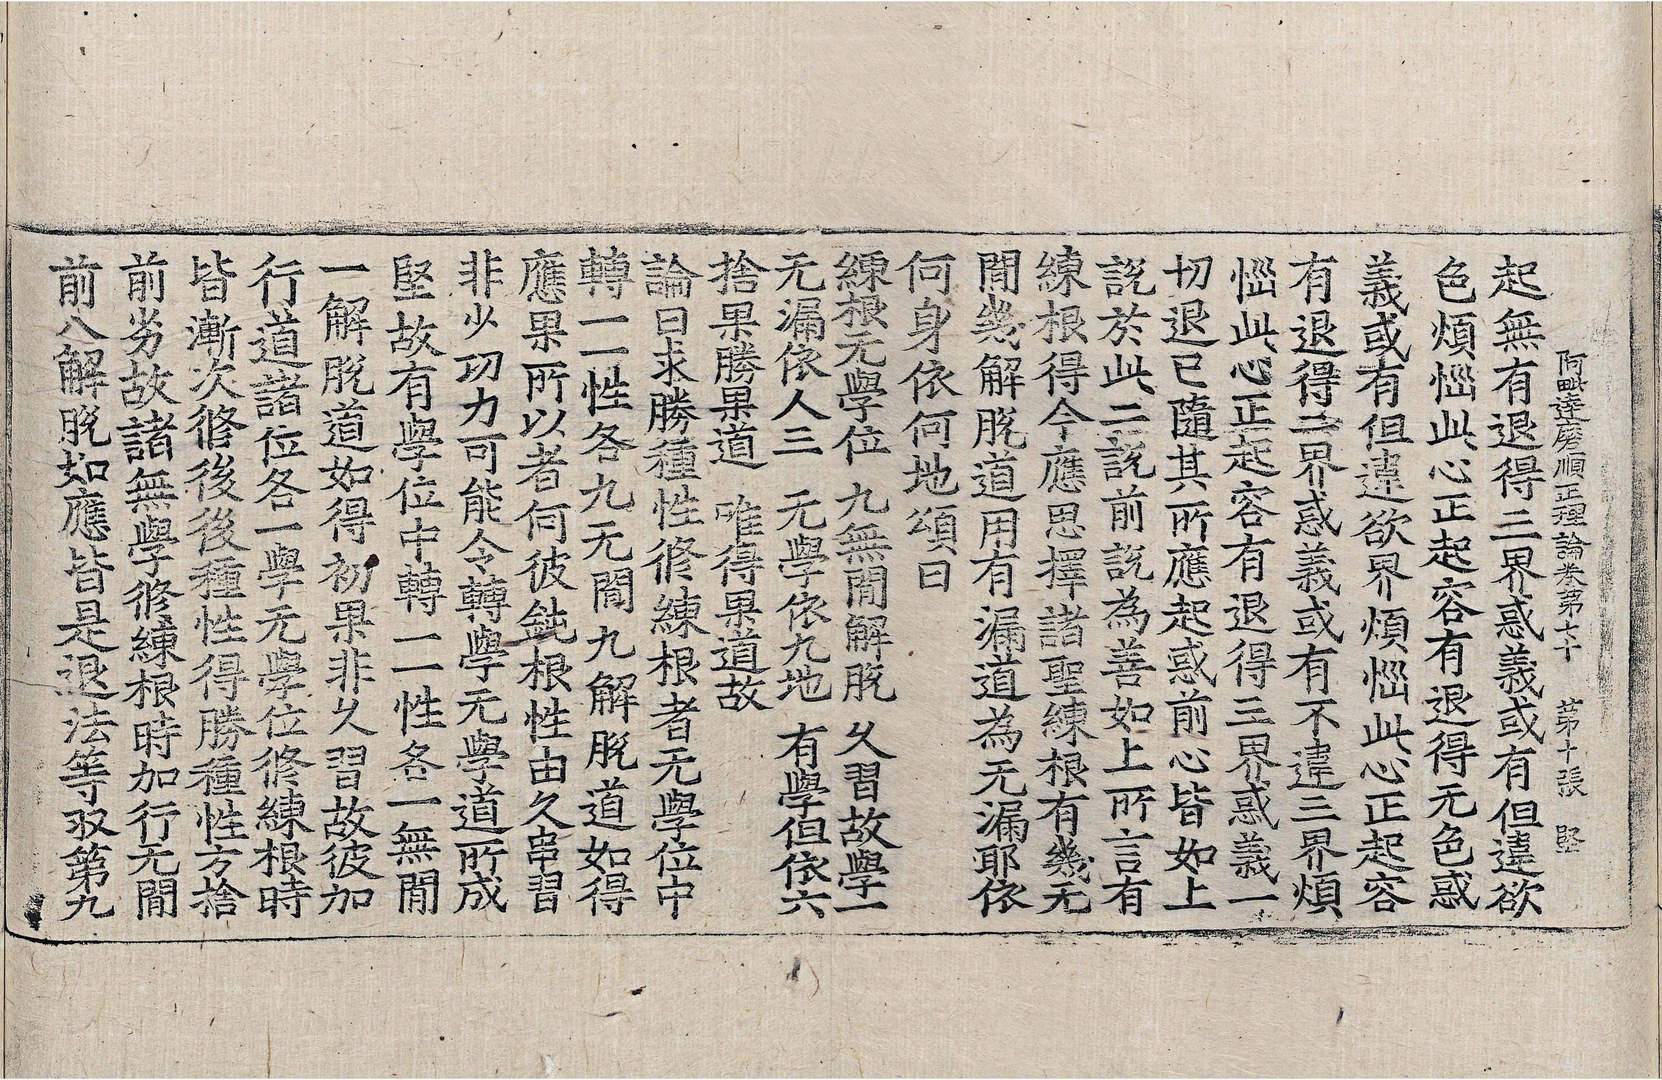 阿毗達磨順正理論卷第七十 第十張 堅
起無有退得三界惑義或有但違欲
色煩惱此心正起容有退得无色惑
義或有但違欲界煩惱此心正起容
有退得三界惑義或有不違三界煩
惱此心正起容有退得三界惑義一
切退已隨其所應起惑前心皆如上
說於此二說前說為善如上所言有
練根得今應思擇諸聖練根有幾无
閒幾解脫道用有漏道為无漏耶依
何身依何地頌曰
練根无學位 九無閒解脫 久習故學一
无漏依人三 无學依九地 有學但依六
捨果勝果道 唯得果道故
論曰求勝種性修練根者无學位中
轉一一性各九无閒九解脫道如得
應果所以者何彼鈍根性由久串習
非少功力可能令轉學无學道所成
堅故有學位中轉一一性各一無閒
一解脫道如得初果非久習故彼加
行道諸位各一學无學位修練根時
皆漸次修後後種性得勝種性方捨
前劣故諸無學修練根時加行无閒
前八解脫如應皆是退法等攝第九